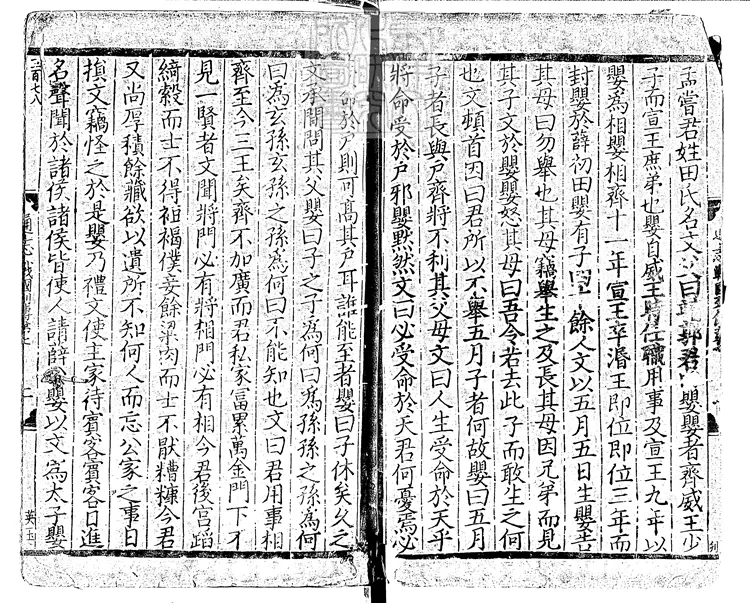 孟嘗君姓田氏名文父曰靖郭君嬰嬰者齊威王少
子而宣王庶弟也嬰自威王時任職用事及宣王九年以
嬰為相嬰相齊十一年宣王卒湣王即位即位三年而
封嬰於薛初田嬰有子四十餘人文以五月五日生嬰告
其母曰勿舉也其母竊舉生之及長其母因兄弟而見
其子文於嬰嬰怒其母曰吾令若去此子而敢生之何
也文頓首因曰君所以不舉五月子者何故嬰曰五月
子者長與戶齊將不利其父母文曰人生受命於天乎
將命受於戶邪嬰默然文曰必受命於天君何憂焉必
命於戶則可高其戶耳誰能至者嬰曰子休矣久之
文承間問其父嬰曰子之子為何曰為孫孫之孫為何
曰為玄孫玄孫之孫為何曰不能知也文曰君用事相
齊至今三王矣齊不加廣而君私家富累萬金門下不
見一賢者文聞將門必有將相門必有相今君後宮蹈
綺縠而士不得裋褐僕妾餘粱肉而士不厭糟糠今君
又尚厚積餘藏欲以遺所不知何人而忘公家之事日
損文竊怪之於是嬰乃禮文使主家待賓客賓客日進
名聲聞於諸侯諸侯皆使人請薛公嬰以文為太子嬰
通志